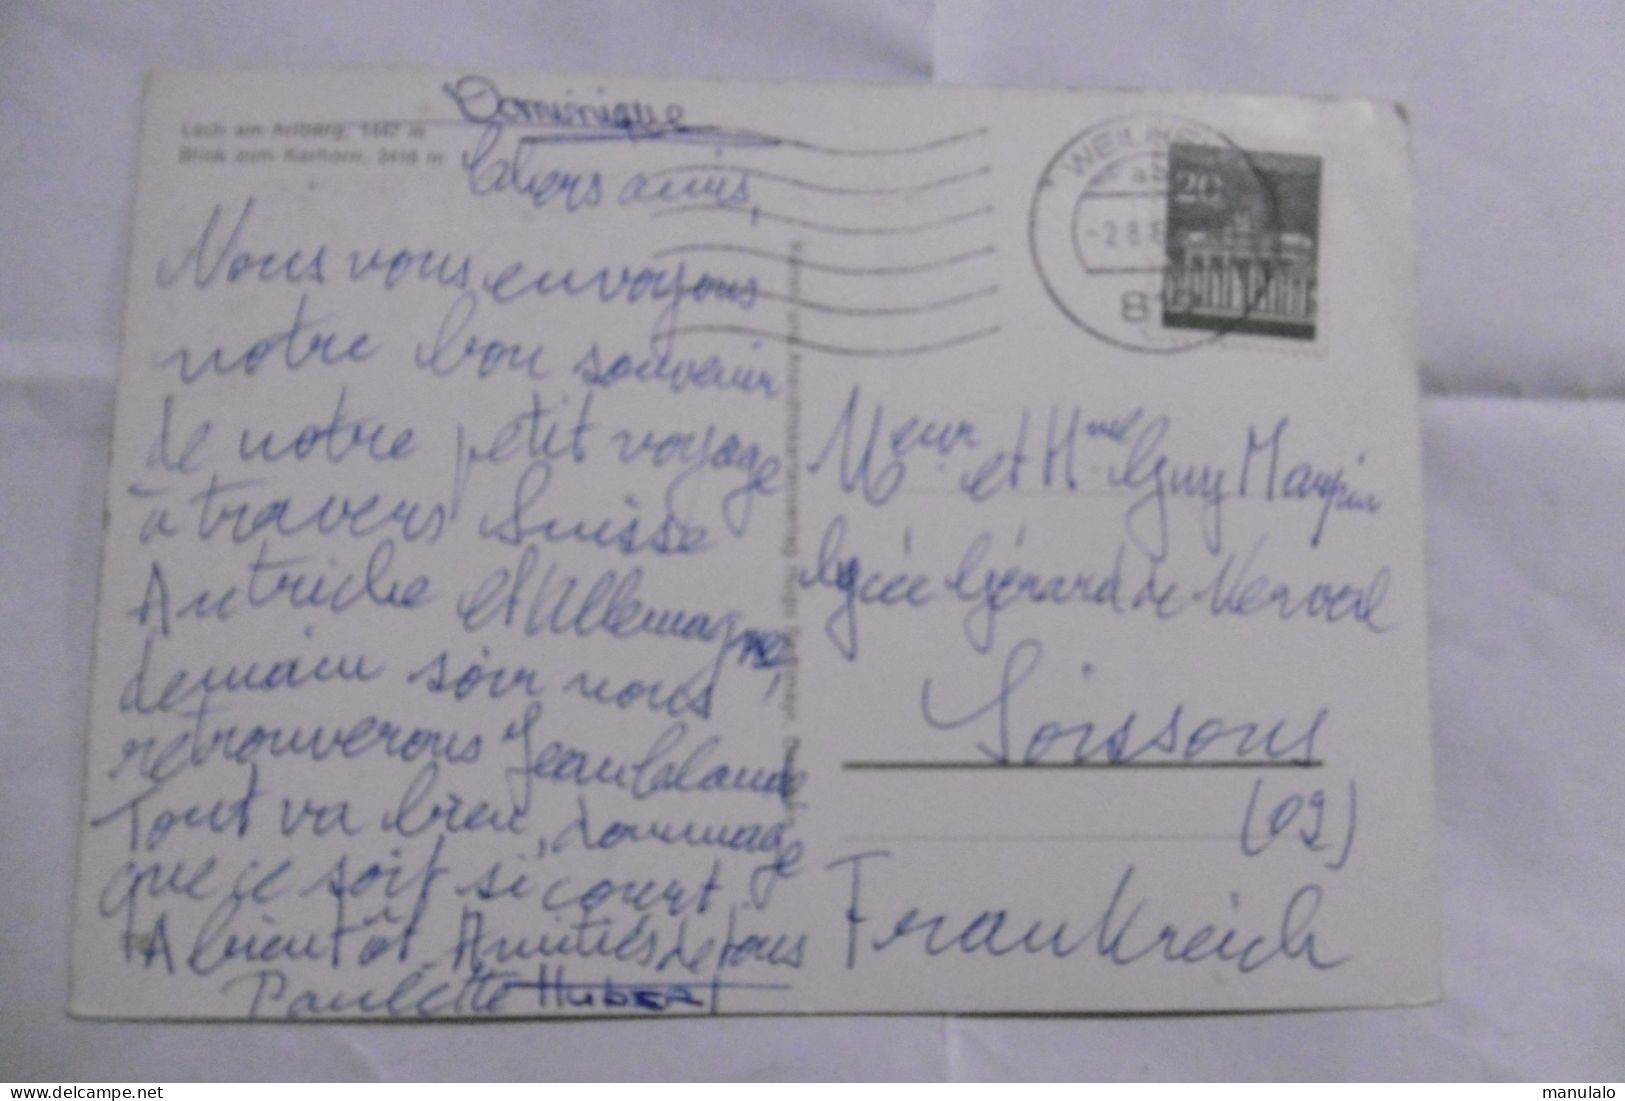 Dominique
Lech am Arlberg, 1447 m
Blick zum Karhorn, 2416 m
Chers amis,
Nous vous envoyons
notre bon souvenir
de notre petit voyage
à travers Suisse
Autriche et Allemagne,
demain soir nous
retrouverons Jean Claude
Tout va bien, dommage
que ce soit si court
A bientôt. Amitiés de tous
Paulette HUBERT
WEILHEIM
20
-2.8.6
81
Meur et Mme Guy Maupin
lycée Gérard de Nerval
Soissons
(02)
Frankreich
manulalo